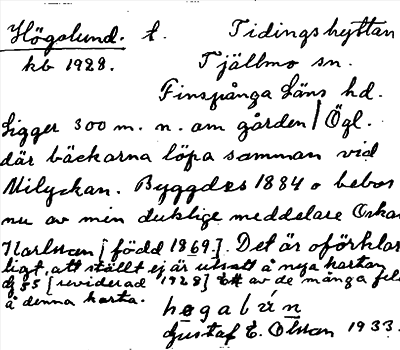 Högslund. t. Tidingshyttan
kb 1928. Tjällmo sn.
Finspånga Läns hd.
Ligger 300 m. n. om gården / Ögl.
där bäckarna löpa samman vid
Nilyckan. Byggdes 1884 o bebos
nu av min duktige meddelare Oskar
Karlsson [född 1869.]. Det är oförklar
ligt, att stället ej är utsatt å nya kartan
[reviderad 1928] av de många fel
å denna karta.
høgslún
Gustaf E. Olsson 1933.